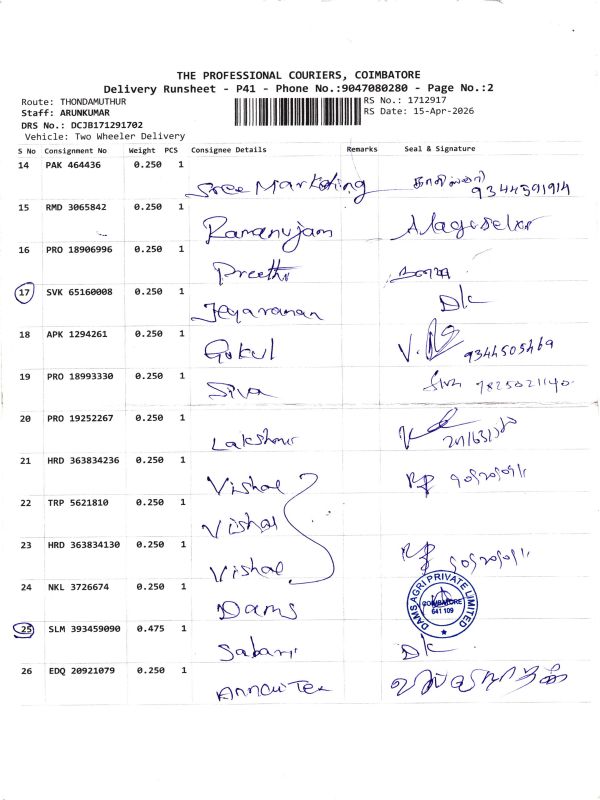 THE PROFESSIONAL COURIERS, COIMBATORE
Delivery Runsheet - P41 - Phone No.:9047080280 - Page No.:2
Route: THONDAMUTHUR
RS No.: 1712917
Staff: ARUNKUMAR
RS Date: 15-Apr-2026
DRS No.: DCJB171291702
Vehicle: Two Wheeler Delivery
S No Consignment No Weight PCS Consignee Details Remarks Seal & Signature
14 PAK 464436 0.250 1 Sree Marketing 9344591914
15 RMD 3065842 0.250 1 Ramanujam
16 PRO 18906996 0.250 1 Preethi
17 SVK 65160008 0.250 1 Jeyaraman D/c
18 APK 1294261 0.250 1 Gokul 9344505469
19 PRO 18993330 0.250 1 Siva Siva 7825021140
20 PRO 19252267 0.250 1 Lakshmi
21 HRD 363834236 0.250 1 Vishal
22 TRP 5621810 0.250 1 Vishal
23 HRD 363834130 0.250 1 Vishal
24 NKL 3726674 0.250 1 Dams DAMS AGRI PRIVATE LIMITED COIMBATORE 641 109
25 SLM 393459090 0.475 1 Sabari D/c
26 EDQ 20921079 0.250 1